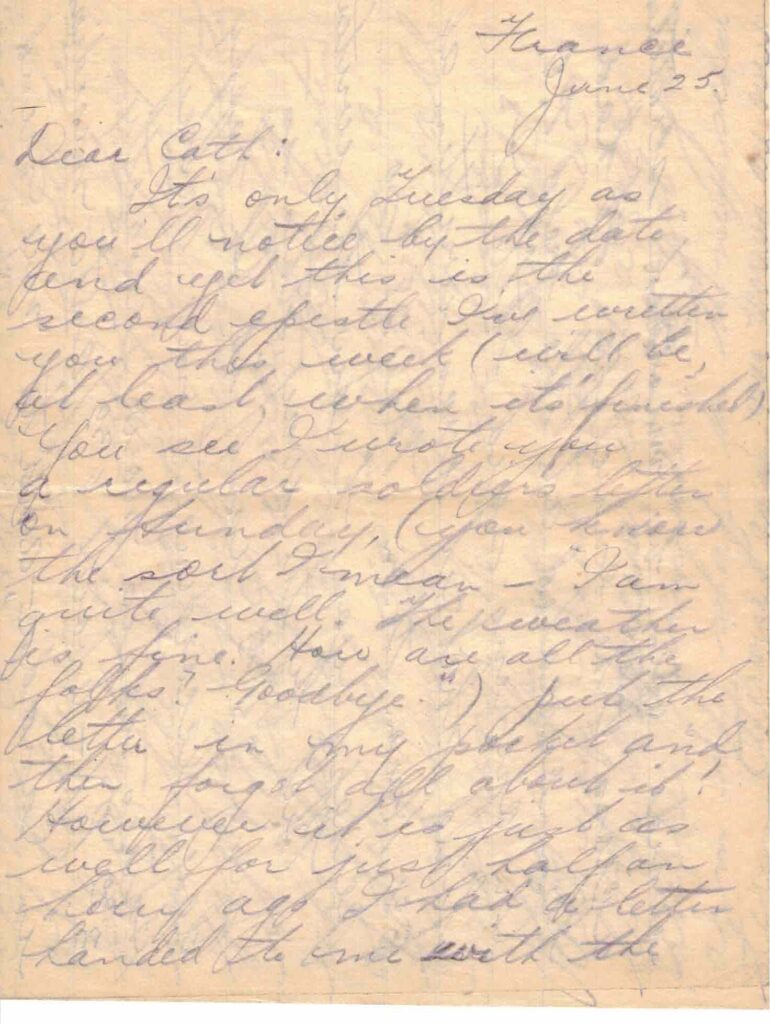 France
June 25.
Dear Cath:
It's only Tuesday as
you'll notice by the date
and yet this is the
second epistle I've written
you this week (will be,
at least, when it's finished)
You see I wrote you
a regular soldiers letter
on Sunday, (you know
the sort I mean – "I am
quite well. The weather
is fine. How are all the
folks? Goodbye.") put the
letter in my pocket and
then forgot all about it!
However it is just as
well for just half an
hour ago I had a letter
handed to me with the